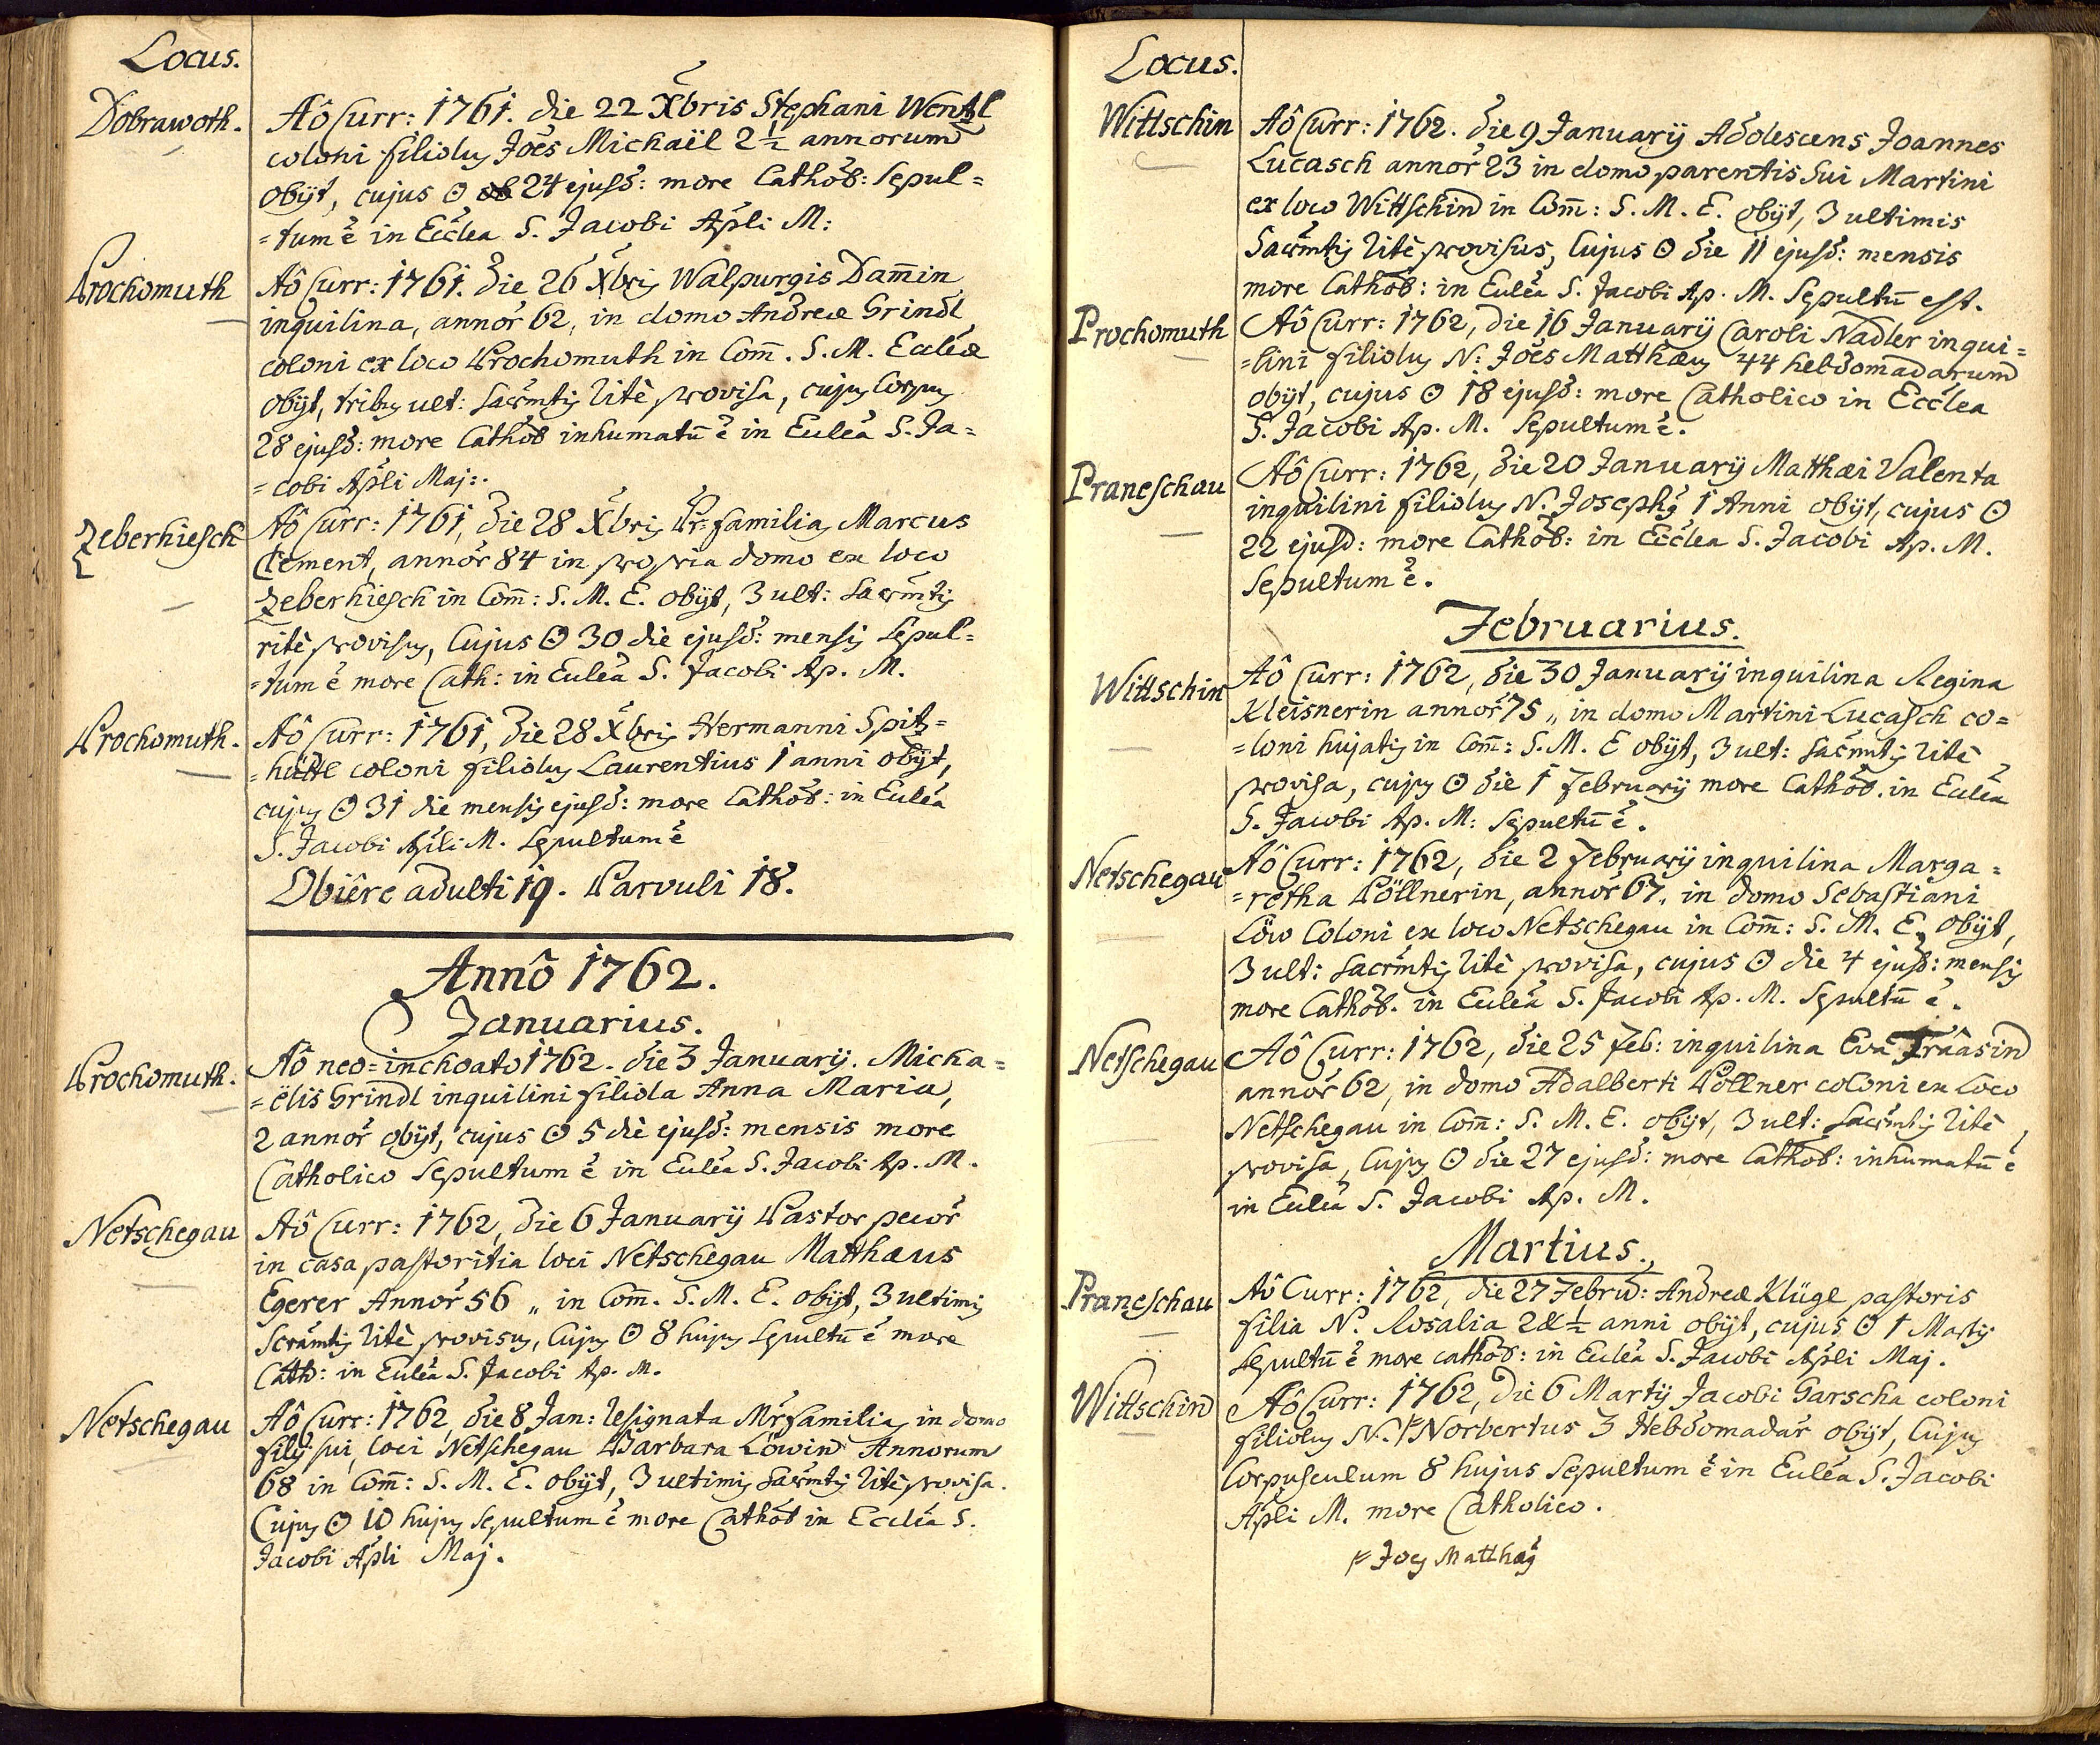 Locus.
Dobrawoth.
Aô Curr: 1761. die 22 Xbris Stephani Wentzl
coloni filiolus Jões Michaël 2½ annorum
obijt, cujus ʘ 24 ejusd: more Cathol: sepul=
=tum ẽ in Ecclea S. Jacobi Apli M:
Prochomuth
Aô Curr: 1761. die 26 Xbris Walpurgis Dam̄in
inquilina, annor̃ 62, in domo Andreæ Grindl
coloni ex loco Prochomuth in Com̄. S. M. Eccleæ
obijt, tribus ult: sacrm̃tis ritè provisa, cujus Corpus
28 ejusd: more Cathol inhumatū ẽ in Ecclea S. Ja=
=cobi Apli Maj:.
Zeberhiesch
Aô Curr: 1761, die 28 Xbris Pr: familias Marcus
Clement, annor̃ 84 in propria domo ex loco
Zeberhiesch in Com̄: S. M. E. obijt, 3 ult: sacrm̃tis
ritè provisus, Cujus ʘ 30 die ejusd: mensis sepul=
=tum ẽ more Cath: in Ecclea S. Jacobi Ap. M.
Prochomuth.
Aô Curr: 1761, die 28 Xbris Hermanni Spitz=
=hüttl coloni filiolus Laurentius 1 anni obijt,
cujus ʘ 31 die mensis ejusd: more Cathol: in Ecclea
S. Jacobi Apli M. sepultum ẽ
Obiêre adulti 19. Parvuli 18.
Annô 1762.
Januarius.
Prochomuth.
Aô neo=inchoato 1762. die 3 Januarij. Micha=
=ëlis Grindl inquilini filiola Anna Maria,
2 annor̃ obijt, cujus ʘ 5 die ejusd: mensis more
Catholico sepultum ẽ in Ecclea S. Jacobi Ap. M.
Netschegau
Aô Curr: 1762, die 6 Januarij Pastor pecor̃
in casa pastoritia loci Netschegau Matthæus
Egerer Annor̃ 56 „ in Com̄. S. M. E. obijt, 3 ultimis
Scram̃tis ritè provisus, Cujus ʘ 8 hujus sepultū ẽ more
Cath: in Ecclea S. Jacobi Ap. M.
Netschegau
Aô Curr: 1762, die 8 Jan: resignata Mr̃familias in domo
filij sui, loci Netschegau Barbara Löwin Annorum
68 in Com̄: S. M. E. obijt, 3 ultimis sacrm̃tis ritè provisa.
Cujus ʘ 10 hujus sepultum ẽ more Cathol in Ecclea S.
Jacobi Apli Maj.
Locus.
Wittschin
Aô Curr: 1762. die 9 Januarij Adolescens Joannes
Lucasch annor̃ 23 in domo parentis sui Martini
ex loco Wittschin in Com̄: S. M. E. obijt, 3 ultimis
Sacrm̃tis ritè provisus, Cujus ʘ die 11 ejusd: mensis
more Cathol: in Ecclea S. Jacobi Ap. M. Sepultū est.
Prochomuth
Aô Curr: 1762, die 16 Januarij Caroli Nadler inqui=
=lini filiolus N: Jões Matthæus 44 hebdomadarum
obijt, cujus ʘ 18 ejusd: more Catholico in Ecclea
S. Jacobi Ap. M. Sepultum ẽ.
Praneschau
Aô Curr: 1762, die 20 Januarij Matthæi Valenta
inquilini filiolus N. Josephus 1 Anni obijt, cujus ʘ
22 ejusd: more Cathol: in Ecclea S. Jacobi Ap. M.
sepultum ẽ.
Februarius.
Wittschin
Aô Curr: 1762, die 30 Januarij inquilina Regina
Kleisnerin annor̃ 75 „ in domo Martini Lucasch co=
=loni hujatis in Com̄: S. M. E obijt, 3 ult: sacrm̃tis ritè
provisa, cujus ʘ die 1 February more Cathol. in Ecclea
S. Jacobi Ap. M: sepultū ẽ.
Netschegau
Aô Curr: 1762, die 2 February inquilina Marga=
=retha Pöllnerin, annor̃ 67 „ in domo Sebastiani
Löw Coloni ex loco Netschegau in Com̄: S. M. E. obijt,
3 ult: sacrm̃tis ritè provisa, cujus ʘ die 4 ejusd: mensis
more Cathol. in Ecclea S. Jacobi Ap. M. Sepultū ẽ.
Netschegau
Aô Curr: 1762, die 25 Feb: inquilina Eva Fraasin
annor̃ 62, in domo Adalberti Pöllner coloni ex Loco
Netschegau in Com̄: S. M. E. obijt, 3 ult: sacrm̃tis ritè
provisa, Cujus ʘ die 27 ejusd: more Cathol: inhumatū ẽ
in Ecclea S. Jacobi Ap. M.
Martius.
Praneschau
Aô Curr: 1762, die 27 Febru: Andreæ Klügl pastoris
filia N. Rosalia 2 & ½ anni obijt, cujus ʘ 1 Martij
sepultū ẽ more cathol: in Ecclea S. Jacobi Apli Maj.
Wittschin
Aô Curr: 1762, die 6 Martij Jacobi Garscha coloni
filiolus N. Norbertus 3 Hebdomadar̃ obijt, Cujus
Corpusculum 8 hujus sepultum ẽ in Ecclea S. Jacobi
Apli M. more Catholico.
Joes Matthæus